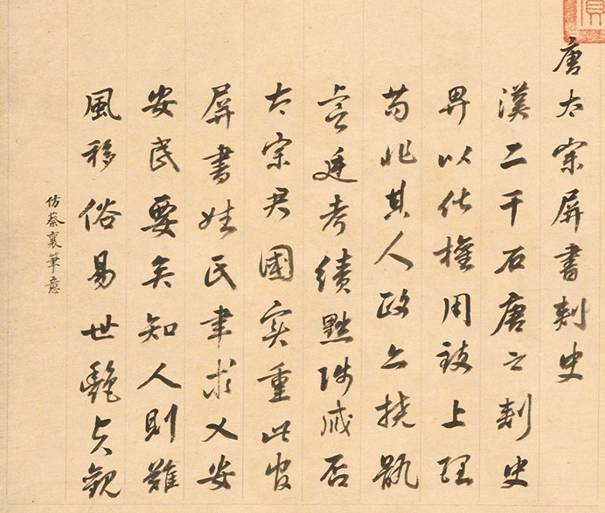 唐太宗屏書刺史
漢二千石唐之刺史
畀以化權用致上理
苟非其人政骫
虞廷考績黜陟臧否
太宗君國實重此官
屏書姓氏聿求乂安
安民要矣知人則難
風移俗易世艷貞觀
仿蔡襄筆意